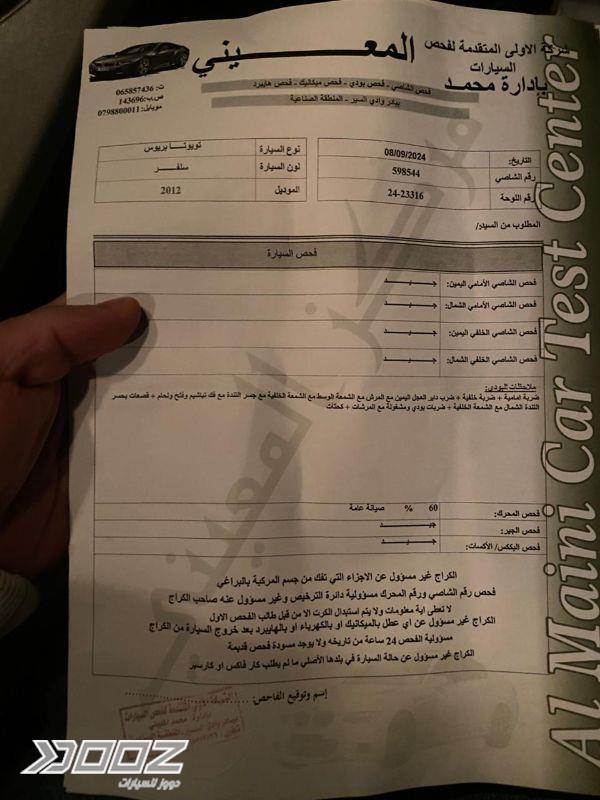 شركة الاولى المتقدمة لفحص
السيارات
بإدارة محمد
المعيني
فحص الشاصي - فحص بودي - فحص ميكانيك - فحص هايبرد
بيادر وادي السير - المنطقة الصناعية
ت: 065857436
ص.ب: 143696
موبايل: 0798800011
التاريخ: 08/09/2024
رقم الشاصي 598544
رقم اللوحة: 24-23316
نوع السيارة تويوتا بريوس
لون السيارة سلفر
الموديل 2012
المطلوب من السيد/
فحص السيارة
فحص الشاصي الأمامي اليمين: جيد
فحص الشاصي الأمامي الشمال: جيد
فحص الشاصي الخلفي اليمين: جيد
فحص الشاصي الخلفي الشمال: جيد
ملاحظات البودي:
ضربة امامية + ضربة خلفية + ضرب داير العجل اليمين مع المرش مع الشمعة الوسط مع الشمعة الخلفية مع جسر التندة مع فك تباشيم وفتح ولحام + قصعات بجسر
التندة الشمال مع الشمعة الخلفية + ضربات بودي ومشغولة مع المرشات + كحتات
فحص المحرك: 60 % صيانة عامة
فحص الجير: جيد
فحص البكس/ الأكسات: جيد
الكراج غير مسؤول عن الاجزاء التي تفك من جسم المركبة بالبراغي
فحص رقم الشاصي ورقم المحرك مسؤولية دائرة الترخيص وغير مسؤول عنه صاحب الكراج
لا تعطى اية معلومات ولا يتم استبدال الكرت الا من قبل طالب الفحص الاول
الكراج غير مسؤول عن اي عطل بالميكانيك او بالكهرباء او بالهايبرد بعد خروج السيارة من الكراج
مسؤولية الفحص 24 ساعة من تاريخه ولا يوجد مسودة فحص قديمة
الكراج غير مسؤول عن حالة السيارة في بلدها الأصلي ما لم يطلب كار فاكس او كارسير
إسم وتوقيع الفاحص:
Al Maini Car Test Center
مركز المعيني
DOOZ
دووز للسيارات